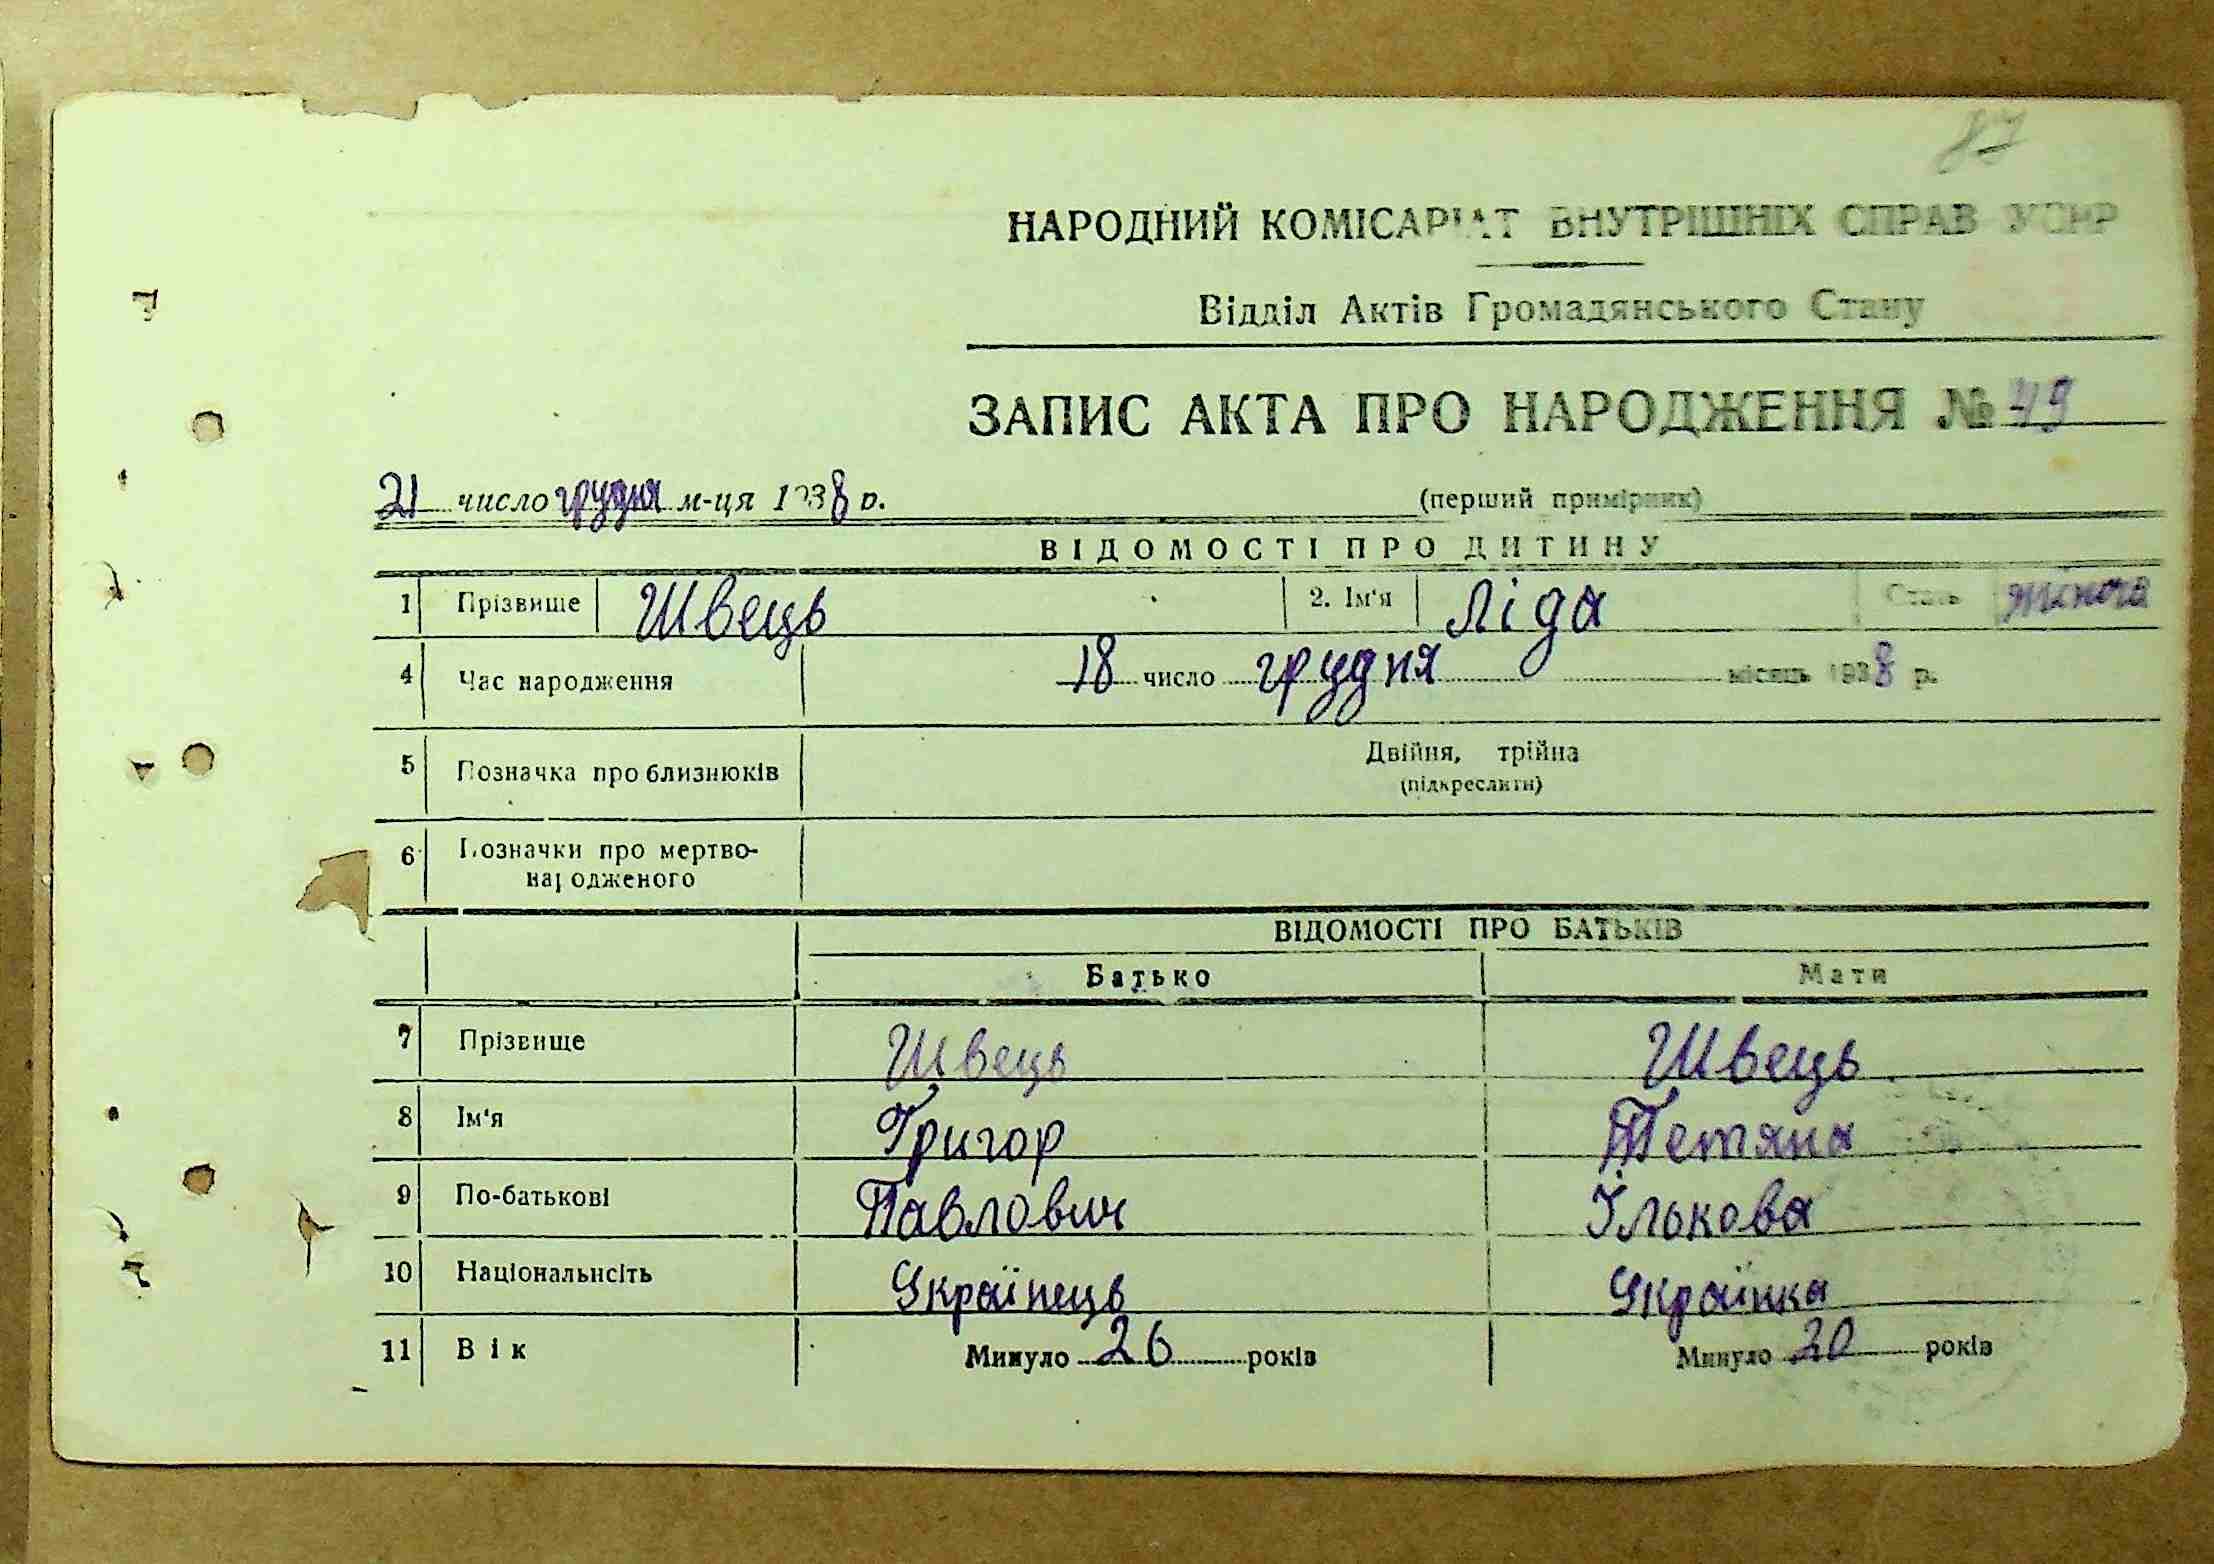 87
НАРОДНИЙ КОМІСАРІАТ ВНУТРІШНІХ СПРАВ УСРР
Відділ Актів Громадянського Стану
ЗАПИС АКТА ПРО НАРОДЖЕННЯ № 49
21 число грудня м-ця 1938 р.
(перший примірник)
ВІДОМОСТІ ПРО ДИТИНУ
1 Прізвище Швець 2. Ім'я Ліда Стать жіноча
4 Час народження 18 число грудня місяць 1938 р.
5 Позначка про близнюків Двійня, трійна
(підкреслити)
6 Позначки про мертво-
народженого
ВІДОМОСТІ ПРО БАТЬКІВ
Батько Мати
7 Прізвище Швець Швець
8 Ім'я Григор Тетяна
9 По-батькові Павлович Ількова
10 Національнсіть Українець Українка
11 Вік Минуло 26 років Минуло 20 років